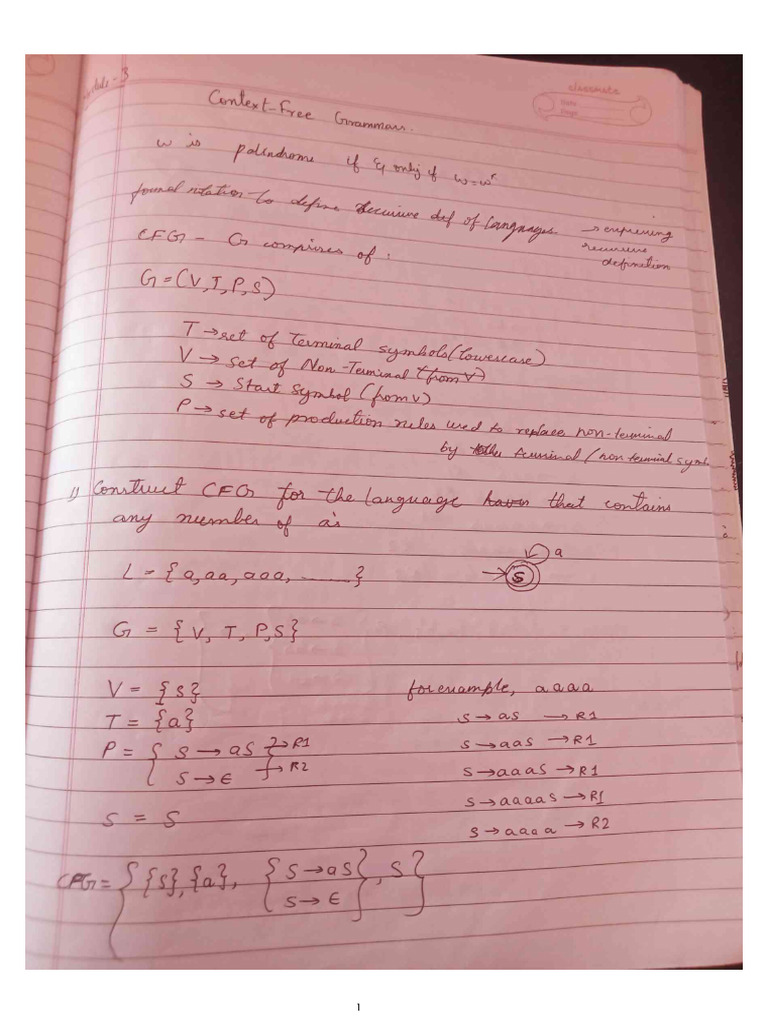 Module-3
classmate
Date
Page
Context-Free Grammar.
w is palindrome if & only if w=wʳ
formal notation to define recursive def of languages. → expressing recursive definition
CFG - G comprises of :
G=(V,T,P,S)
T → set of Terminal symbols (lowercase)
V → set of Non-Terminal (from V)
S → Start symbol (from V)
P → set of production rules used to replace non-terminal
by terminal / non terminal symb
1) Construct CFG for the language that contains
any number of a's
L = {a, aa, aaa, ......}
a
S
G = {V, T, P, S}
V = {S}
for example, aaaa
T = {a}
S → aS → R1
P = { S → aS } → R1
S → aaS → R1
S → ϵ → R2
S → aaaS → R1
S = S
S → aaaaS → R1
S → aaaa → R2
CFG = { {S}, {a}, { S → aS }, S }
S → ϵ
1